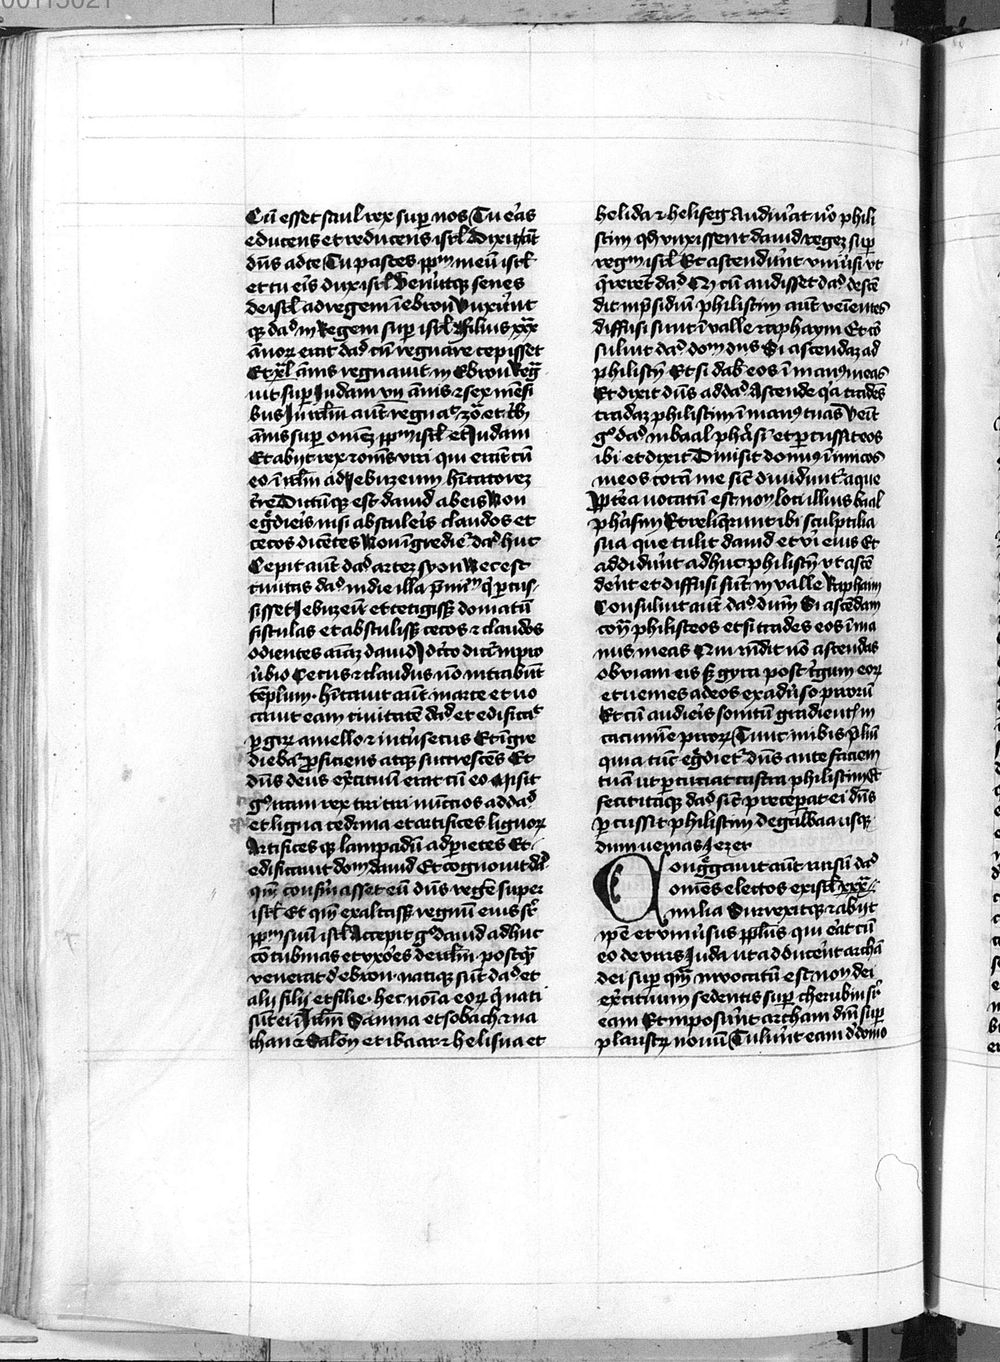 Cū esset saul rex suꝑ nos Tu eras
educens et reducens isrl Dixit aūt
dūs ad te Tu pasces ppm̄ meū isrl
et tu eris dux isrl Venerūtqꝫ senes
de isrl ad regem ī ebron Vnxerūt
qꝫ dauid in Regem suꝑ isrl Filius xxx
ānoꝝ erat dauid cū regnare cepisset
Et xl ānis regnauit in Ebron Reg̃
uit suꝑ Judam vij ānis ⁊ sex mēsi
bus In irlm̄ aūt regnauit xxx et tb̾
ānis suꝑ omēꝫ ppm̄ isrl et Judam
Et abijt rex ⁊ om̄s viri qui erāt cū
eo ī irlm̄ ad Jebuzeum habitatorez
terre Dictūqꝫ est dauid ab eis Non
egredieris nisi abstuleris claudos et
cecos dicētes Non īgrediet̾ dauid huc
Cepit aūt dauid arcez syon Hec est
ciuitas dauid in die illa p̄miū qui ꝑcus-
sisset Jebuzeū et tetigissꝫ domatū
fistulas et abstulissꝫ cecos ⁊ claudos
odientes aīaꝫ dauid Idcirco dicit̾ in pro
uerbio Cecus ⁊ claudus nō intrabūt
tēplum. habitauit aūt in arce et uo
cauit eam ciuitatē dauid et edificauit
ꝑ giꝝ a mello ⁊ intrīsecus Et īgre
diebat̾ ꝓficiens atqꝫ succrescēs Et
dūs deus exercituū erat cū eo Misit
gͦ iram rex tiri nūccios ad dauid
et ligna cedrina et artifices lignoꝝ
Artifices qꝫ lampadū ad parietes Et
edificauit dom̄ dauid Et cognouit dauid
qm̄ confirmasset eū dūs regē super
isrl Et qm̄ exaltassꝫ regnū eius sr̄
ppm̄ suū isrl Accepit gͦ dauid adhuc
cōcubinas et vxores de irlm̄ postqͣ
venerat d ebron natiqꝫ sūt dauid et
alij filij et filie. hec noīa eoꝝ qui nati
sūt ei ī irlm̄ Samna et sobach ⁊ na
than ⁊ Salōn et ibaar ⁊ helisua et
helida ⁊ helifeg Audiuerāt uͦ phili
stim qd vnxissent dauid regeꝫ suꝑ
regm̄ isrl Et ascenderūt vniuersi vt
quererēt dauid Qd cū audisset dauid descē
dit in p̄sidiū philistim aūt veīentes
diffusi sunt ī valle raphaym Et cō
suluit dauid dom̄ dn̄s Si ascendaꝫ ad
philistȳ Et si dabis eos ī man⁹ meas
Et dixit dūs ad dauid Ascende qͥa trades
tradaꝫ philistim ī man⁹ tuas Venit
gͦ dauid in baal pharasī et ꝑcussit eos
ibi et dixit Diuisit dominꝰ īimicos
meos corā me sic̄ diuidunt̾ aque
ꝓpt̾ea uocatū est nom̄ loci illius baal
pharasim Et reliqerunt ibi sculptilia
sua que tulit dauid et viri eius Et
addiderūt adhuc philistȳ vt ascē
derēt et diffusi sūt in valle Raphaim
Consuluit aūt dauid dn̄m Si ascēdam
contra philisteos et si trades eos ī ma
nus meas Qui rn̄dit nō ascendas
obuiam eis sꝫ gyra post tergum eoꝝ
et uenies ad eos ex aduerso piroru
Et cū audieris sonitū gradientis in
cacumīe piroꝝ Tunc inibis preliū
quia tūc egredietur dūs ante faciem
tuā ut ꝑcuciat castra philistim Et
fecit itaqꝫ dauid sic̄ preceperat ei dūs
ꝑcussit philistim de gabaa usqꝫ
dum uenias Jezer
Congregauit aūt rursū dauid
omēs electos ex isrl xxx
milia Surrexitqꝫ ⁊ abijt
ip̄e et vniuersus pplūs qui erat cū
eo de viris Juda ut adducerēt archā
dei suꝑ quā inuocatū est nom̄ dei
exercituum sedentis suꝑ cherubin sr̄
eam Et imposuerūt archam dn̄i suꝑ
plaustꝝ nouū Tulerūt eam d domo